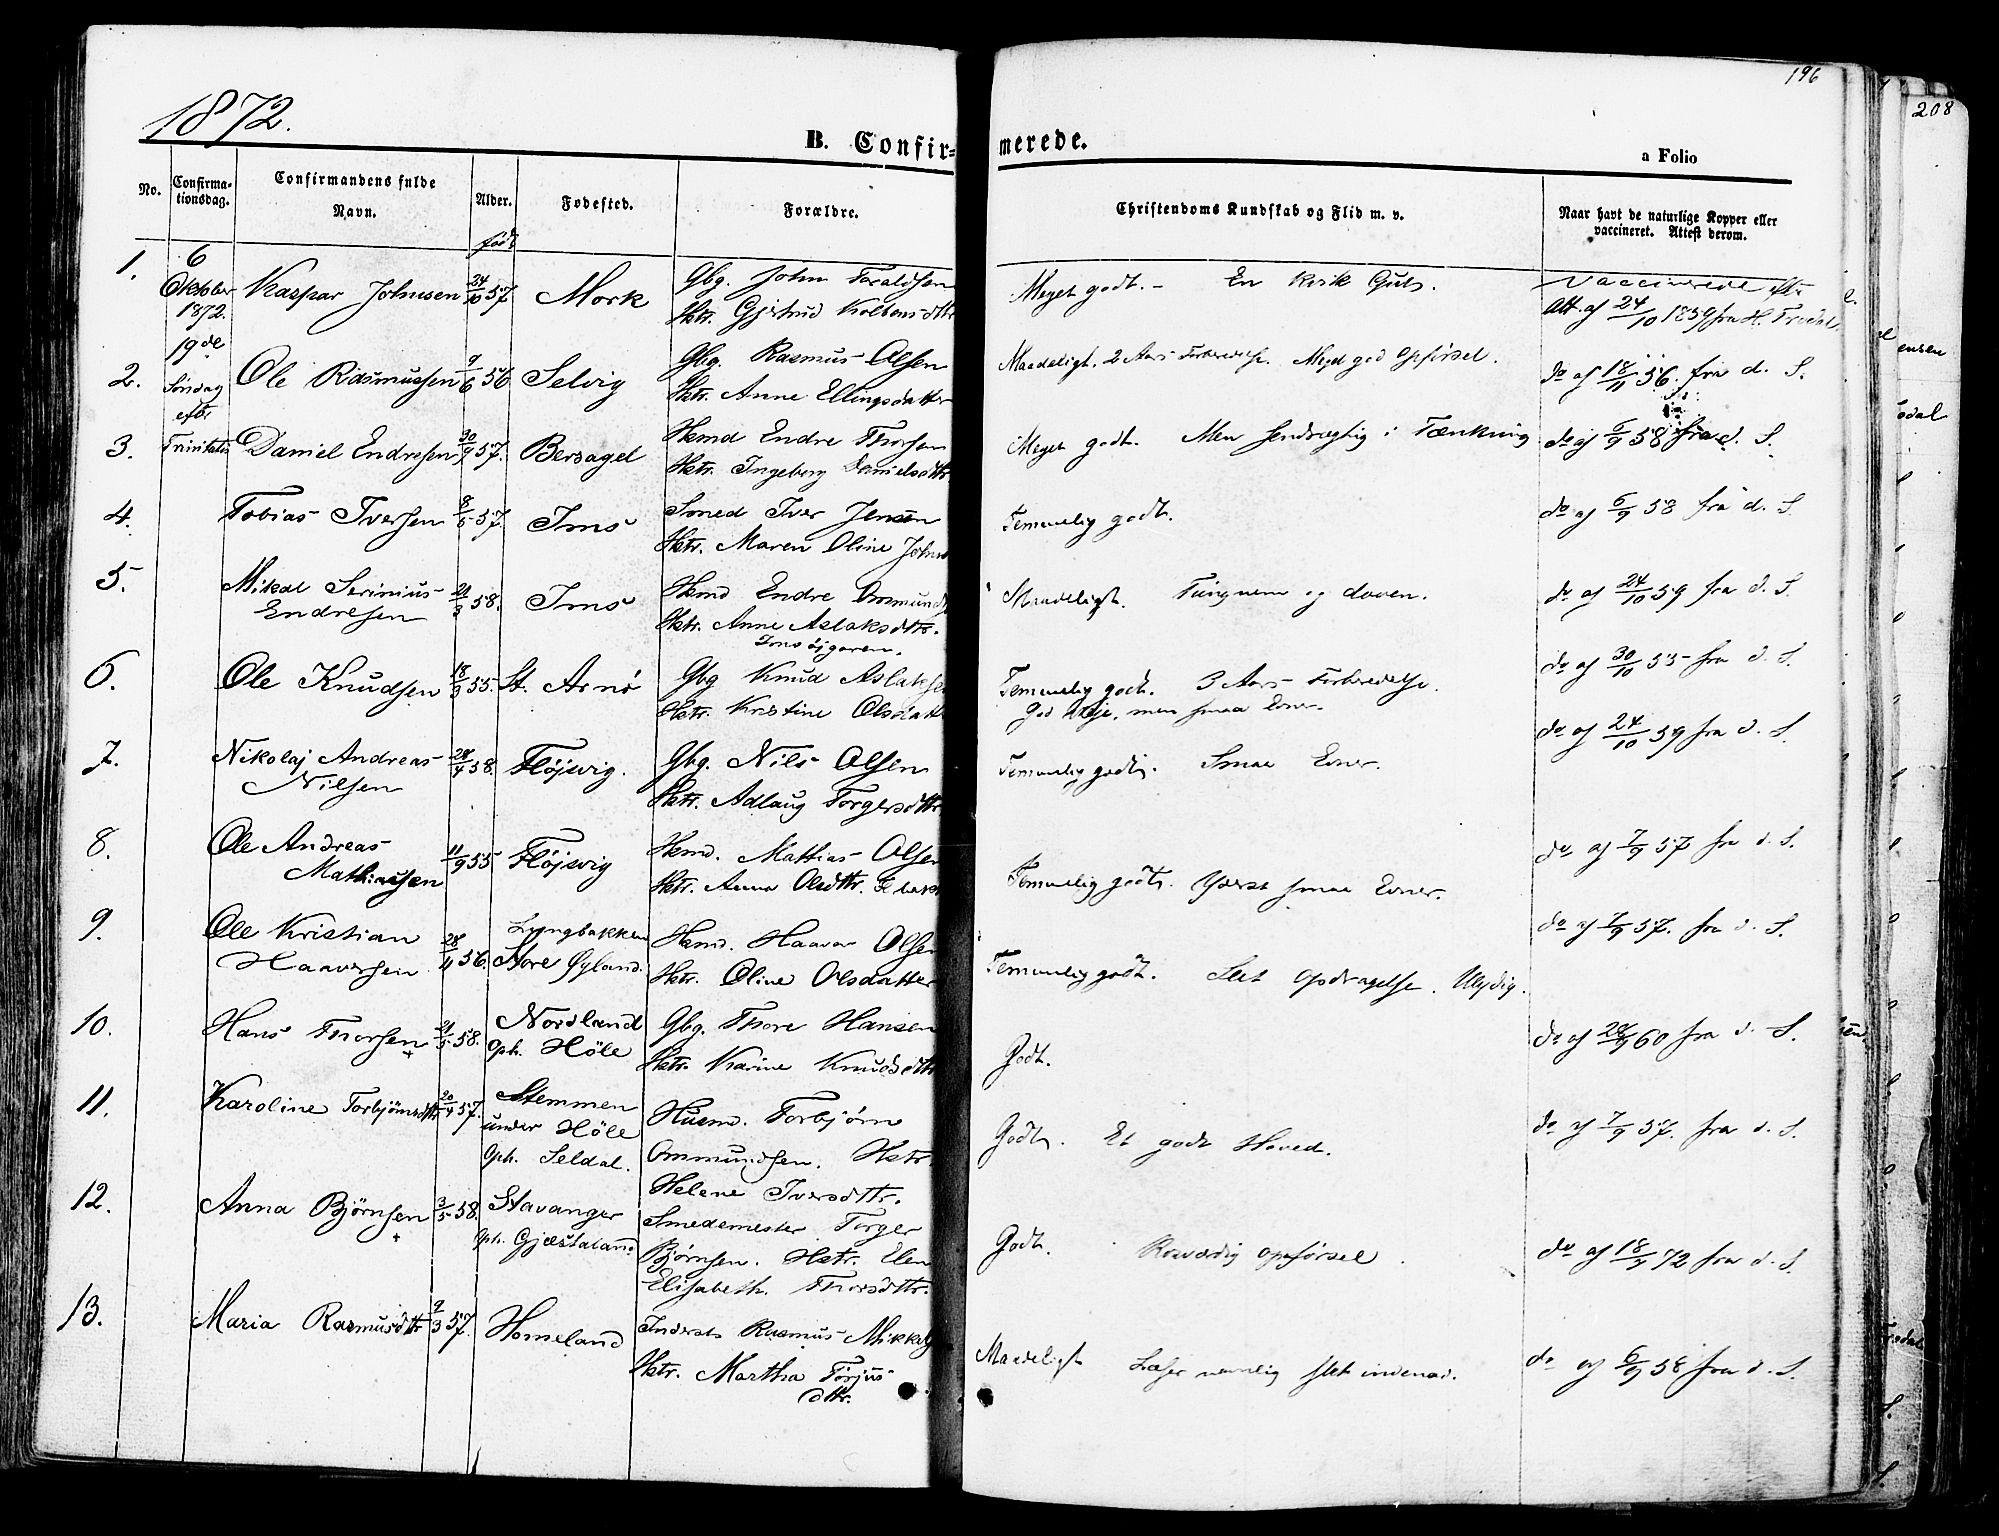 1872.
196
208
B. Confir-
merede.
a Folio
No.
Confirma-
tionsdag.
Confirmandens fulde
Navn.
Alder.
Fødested.
Forældre.
Christendoms Kundskab og Flid m. v.
Naar havt de naturlige Kopper eller
vaccineret. Attest derom.
født
6
Oktober
1872.
19de
Søndag
efter
Trinitatis
1. Kaspar Johnsen 24/10 57. Mork
Gbg. John Taraldsen
Hstr. Gjertrud Kolbensdttr
Meget godt. - En kvik Gut.
Vaccinerede efter
Att. af 24/10 1859 fra H. Trodal.
2. Ole Rasmussen 9/6 56 Selvig
Gbg. Rasmus Olsen
Hstr. Anne Ellingsdatter
Maadeligt. 2 Aars Forberedelse. Meget god Opførsel.
do af 18/11 56. fra d. S.
3. Daniel Endresen 30/9 57. Bersagel
Hsmd Endre Thorsen
Hstr. Ingeborg Danielsdttr
Meget godt. Men sendrægtig i Tænkning
do af 6/9 58 fra d. S.
4. Tobias Iversen 8/5 57. Ims
Smed Iver Jensen
Hstr. Maren Oline Johns
Temmelig godt.
do af 6/9 58 fra d. S.
5. Mikal Serinius 28/3 58. Ims
Endresen
Hsmd Endre Ommunds
Hstr. Anne Aslaksdttr.
Imsøigaren.
Maadeligt. Tungnem og doven.
do af 24/10 59 fra d. S.
6. Ole Knudsen 18/3 55. St. Arnø
Gbg Knud Aslaksen
Hstr. Kristine Olsdatter
Temmelig godt. 3 Aars Forberedelse.
God Vilje, men smaa Evner.
do af 30/10 55 fra d. S.
7. Nikolaj Andreas 28/4 58. Fløjsvig.
Nilsen
Gbg. Nils Olsen
Hstr. Adlaug Torgersdttr.
Temmelig godt. Smaa Evner.
do af 24/10 59 fra d. S.
8. Ole Andreas 11/9 55 Fløjsvig
Mathiassen
Hsmd. Mattias Olsen
Hstr. Anna Olsdttr.
Temmelig godt. Yderst smaa Evner.
do af 7/9 57 fra d. S.
9. Ole Kristian 28/11 56. Lyngbakken
Haaversen Store Øyland.
Hsmd. Haavar Olsen
Hstr. Oline Olsdatter
Temmelig godt. Slet Opdragelse. Ulydig.
do af 7/9 57. fra d. S.
10. Hans Thorsen 21/5 58. Nordland
Oph. Høle
Gbg. Thore Hansen
Hstr. Karine Knudsdttr
Godt.
do af 28/9 60 fra d. S.
11. Karoline Torbjørnsdttr 20/4 57. Stemmen
under Høle
Oph. Seldal.
Husmd. Torbjørn
Ommundsen. Hstr.
Helene Iversdttr.
Godt. Et godt Hoved.
do af 7/9 57. fra d. S.
12. Anna Bjørnsen 3/5 58. Stavanger
Oph. Gjæstaland
Smedemester Torger
Bjørnsen. Hstr. Elen
Elisabeth. Thorsdttr.
Godt. Rosværdig Opførsel.
do af 18/9 72 fra d. S.
13. Maria Rasmusdttr 9/3 57. Homeland
Inderst Rasmus Mikkels
Hstr. Martha Torjus
dttr.
Maadeligt Læser nemlig slet indenad.
do af 6/9 58 fra d. S.